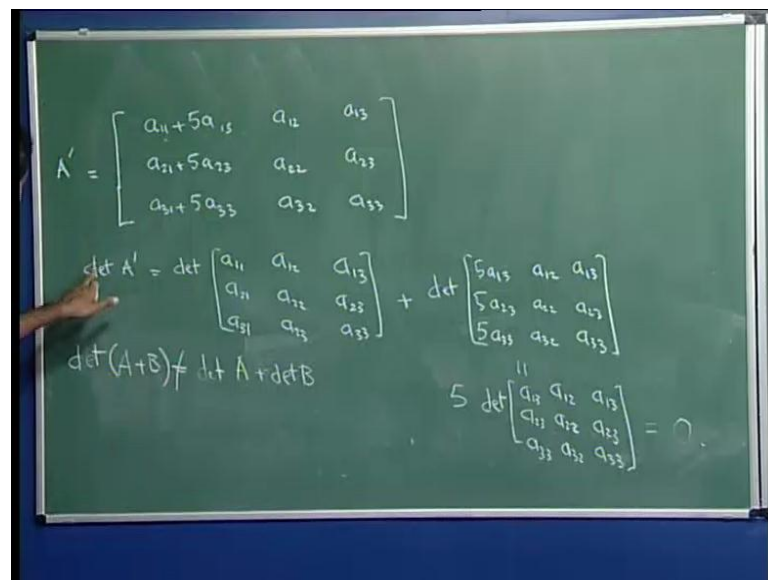 A' = [ a₁₁+5a₁₃ a₁₂ a₁₃
a₂₁+5a₂₃ a₂₂ a₂₃
a₃₁+5a₃₃ a₃₂ a₃₃ ]
det A' = det [ a₁₁ a₁₂ a₁₃ + det [ 5a₁₃ a₁₂ a₁₃
a₂₁ a₂₂ a₂₃ 5a₂₃ a₂₂ a₂₃
a₃₁ a₂₃ a₃₃ ] 5a₃₃ a₃₂ a₃₃ ]
det(A+B) ≠ det A + det B
||
5 det [ a₁₃ a₁₂ a₁₃
a₂₃ a₂₂ a₂₃ = 0.
a₃₃ a₃₂ a₃₃ ]